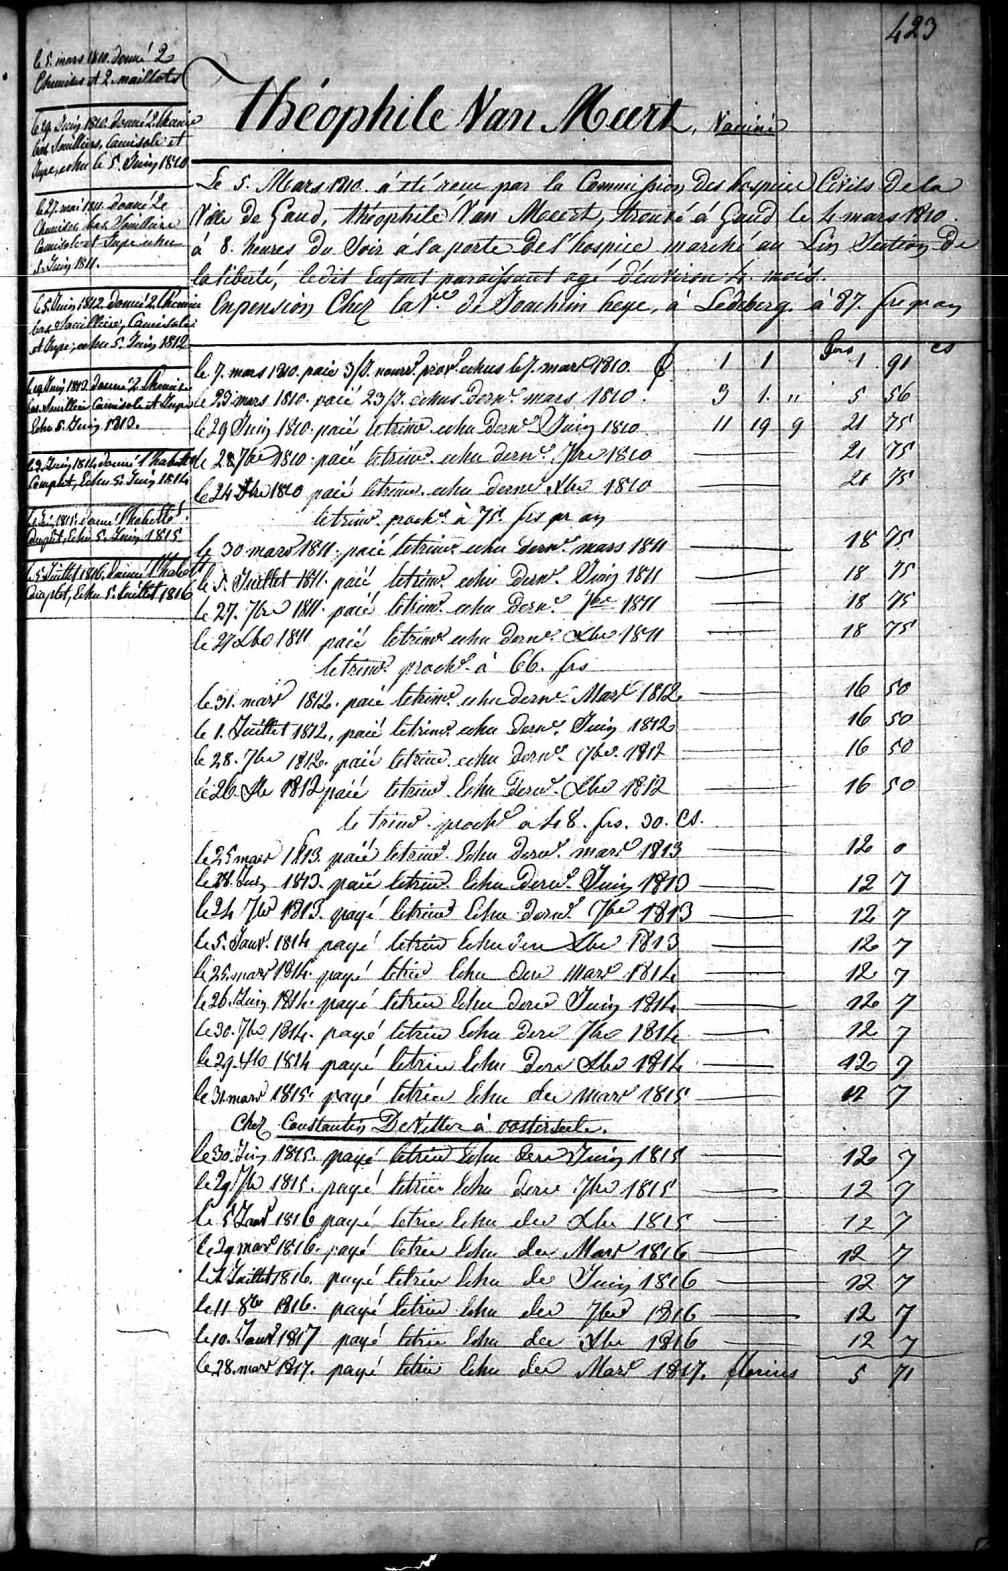 423
le 5. mars 1810. donné 2
Chemises et 2. maillots
le 29 Juin 1810. donné 2. Chemise
bas Souilliers, Camisole et
Jupe, echu le 5. Juin 1810
le 27. mai 1811. donné 2
Chemises bas Souilliers
Camisole et Jupe echu
5. Juin 1811.
le 5. Juin 1812 donné 2. Chemise
bas Souilliers, Camisole
et Jupe, echu 5. Juin 1812
le 19 Juin 1813. donné 2 Chemise
bas Souilliers Camisole et Jupe
Echu 5. Juin 1813.
le 2. Juin 1814 donné 1 habillet
Complet, Echu 5. Juin 1814
Juin 1815. donné 1 habillt
Complet, Echu 5. Juin 1815
le 5 Juillet 1816. donné 1 habillt
Complet, Echu 5. Juillet 1816
Théophile Van Meert, Vacciné
Le 5. Mars 1810. a été recu par la Commission Des hospices Civils De la
Ville de Gand, théophile Van Meert, trouvé à Gand le 4 mars 1810.
à 8. heures Du Soir à la porte De l'hospice marché au Lin Section De
la liberté, ledit Enfant paraissant agé d'environ 4. mois.
En pension Chez la Ve. de Joachim heye, à Ledeberg. à 87. frs pr an
frs cs
le 7. mars 1810. paié 3/J. nourre. prove. echus le 7. mars 1810. 1 1 1 91
le 23 mars 1810. paié 23/J. echus derne. mars 1810. 3 1. " 5 56
le 29 Juin 1810. paié le trime. echu derne. Juin 1810 11 19 9 21 75
le 28 7bre 1810. paié le trime. echu derne. 7bre 1810 21 75
le 24 Xbre 1810 paié le trime. echu derne Xbre 1810 21 75
le trime. proche. à 75. frs pr an
le 30 mars 1811. paié le trime. echu derne. mars 1811 18 75
le 5. Juillet 1811. paié le trime. echu derne. Juin 1811 18 75
le 27. 7bre 1811. paié le trime. echu derne. 7bre 1811 18 75
le 27 Xbre 1811 paié le trime echu derne. Xbre 1811 18 75
le trime. proche. à 66. frs
le 31. mars 1812. paié le trime. echu derne. Mars 1812 16 50
le 1. Juillet 1812, paié le trime. echu derne. Juin 1812 16 50
le 28. 7bre 1812. paié le trime. echu derne. 7bre. 1812 16 50
le 26. Xbre 1812 paié le trime. Echu derne. Xbre 1812 16 50
le trime. proche à 48. frs. 30. Cs.
le 25 mars 1813. paié le trime. Echu derne. mars 1813 12 0
le 28. Juin 1813. paié le trime. Echu derne. Juin 1813 12 7
le 24 7bre 1813. payé le trime. Echu derne. 7bre 1813 12 7
le 5. Janv. 1814 payé le trim Echu der Xbre 1813 12 7
le 25. mars 1814. payé le trim Echu der mars 1814 12 7
le 26. Juin 1814. payé le trim Echu der Juin 1814 12 7
le 30. 7bre 1814. payé le trim Echu der 7bre 1814 12 7
le 29. Xbre 1814 payé le trim Echu der Xbre 1814 12 7
le 31. mars 1815. payé le trim Echu der mars 1815 12 7
Chez Constantin DeVetter à oosterzeele.
le 30. Juin 1815. payé le trim Echu der Juin 1815 12 7
le 29 7bre 1815. payé le trim Echu der 7bre 1815 12 7
le 5 Janv 1816 payé le trim Echu der Xbre 1815 12 7
le 29 mars 1816. payé le trim Echu der Mars 1816 12 7
le 2 Juillet 1816. payé le trim Echu de Juin 1816 12 7
le 11 8bre 1816. payé le trim Echu der 7bre 1816 12 7
le 10. Janv 1817 payé le trim Echu der Xbre 1816 12 7
le 28. mars 1817. payé le trim Echu der Mars 1817. florins 5 71